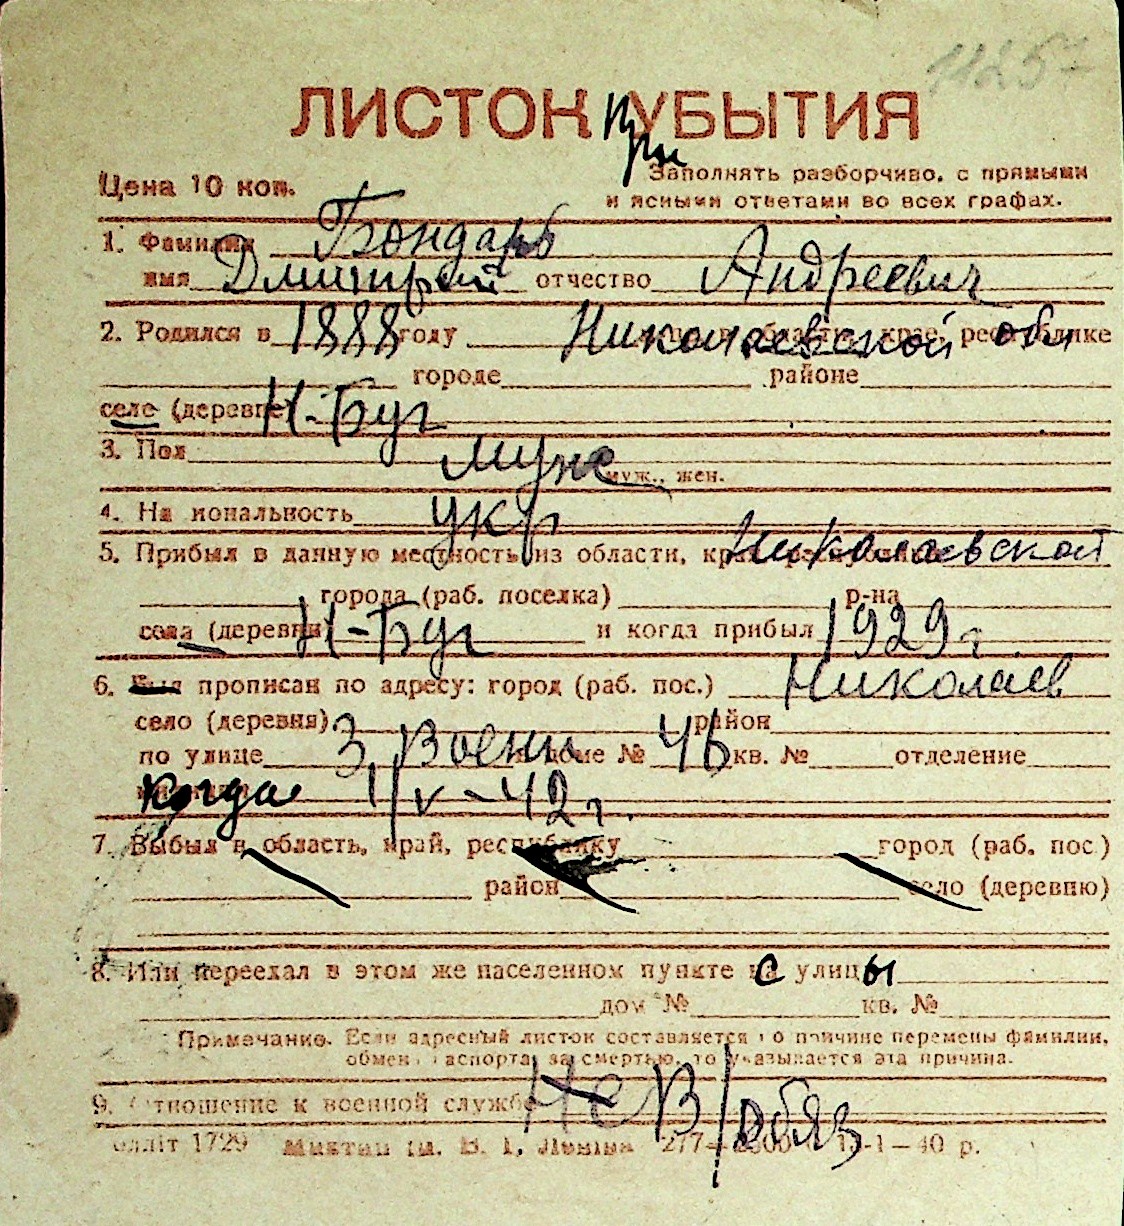 11257
ЛИСТОК при УБЫТИЯ
Цена 10 коп.
Заполнять разборчиво, с прямыми
и ясными ответами во всех графах.
1. Фамилия Бондарь
имя Дмитрий отчество Андреевич
2. Родился в 1888 году Николаевской обл области, крае, республике
городе районе
селе (деревне) Н-Буг
3. Пол муж
муж., жен.
4. Национальность укр
5. Прибыл в данную местность из области, края Николаевской
города (раб. поселка) р-на
села (деревни) Н-Буг и когда прибыл 1929 г.
6. Был прописан по адресу: город (раб. пос.) Николаев
село (деревня) район
по улице 3 Воен в доме № 46 кв. № отделение
когда 1/V-42 г.
7. Выбыл в область, край, республику город (раб. пос.)
район село (деревню)
8. Или переехал в этом же населенном пункте с улицы
дом № кв. №
Примечание. Если адресный листок составляется по причине перемены фамилии,
обмена паспорта, за смертью, то указывается эта причина.
9. Отношение к военной службе не в/обяз
Облліт 1729 Миктип ім. В. І. Леніна 277— 13-1—40 р.